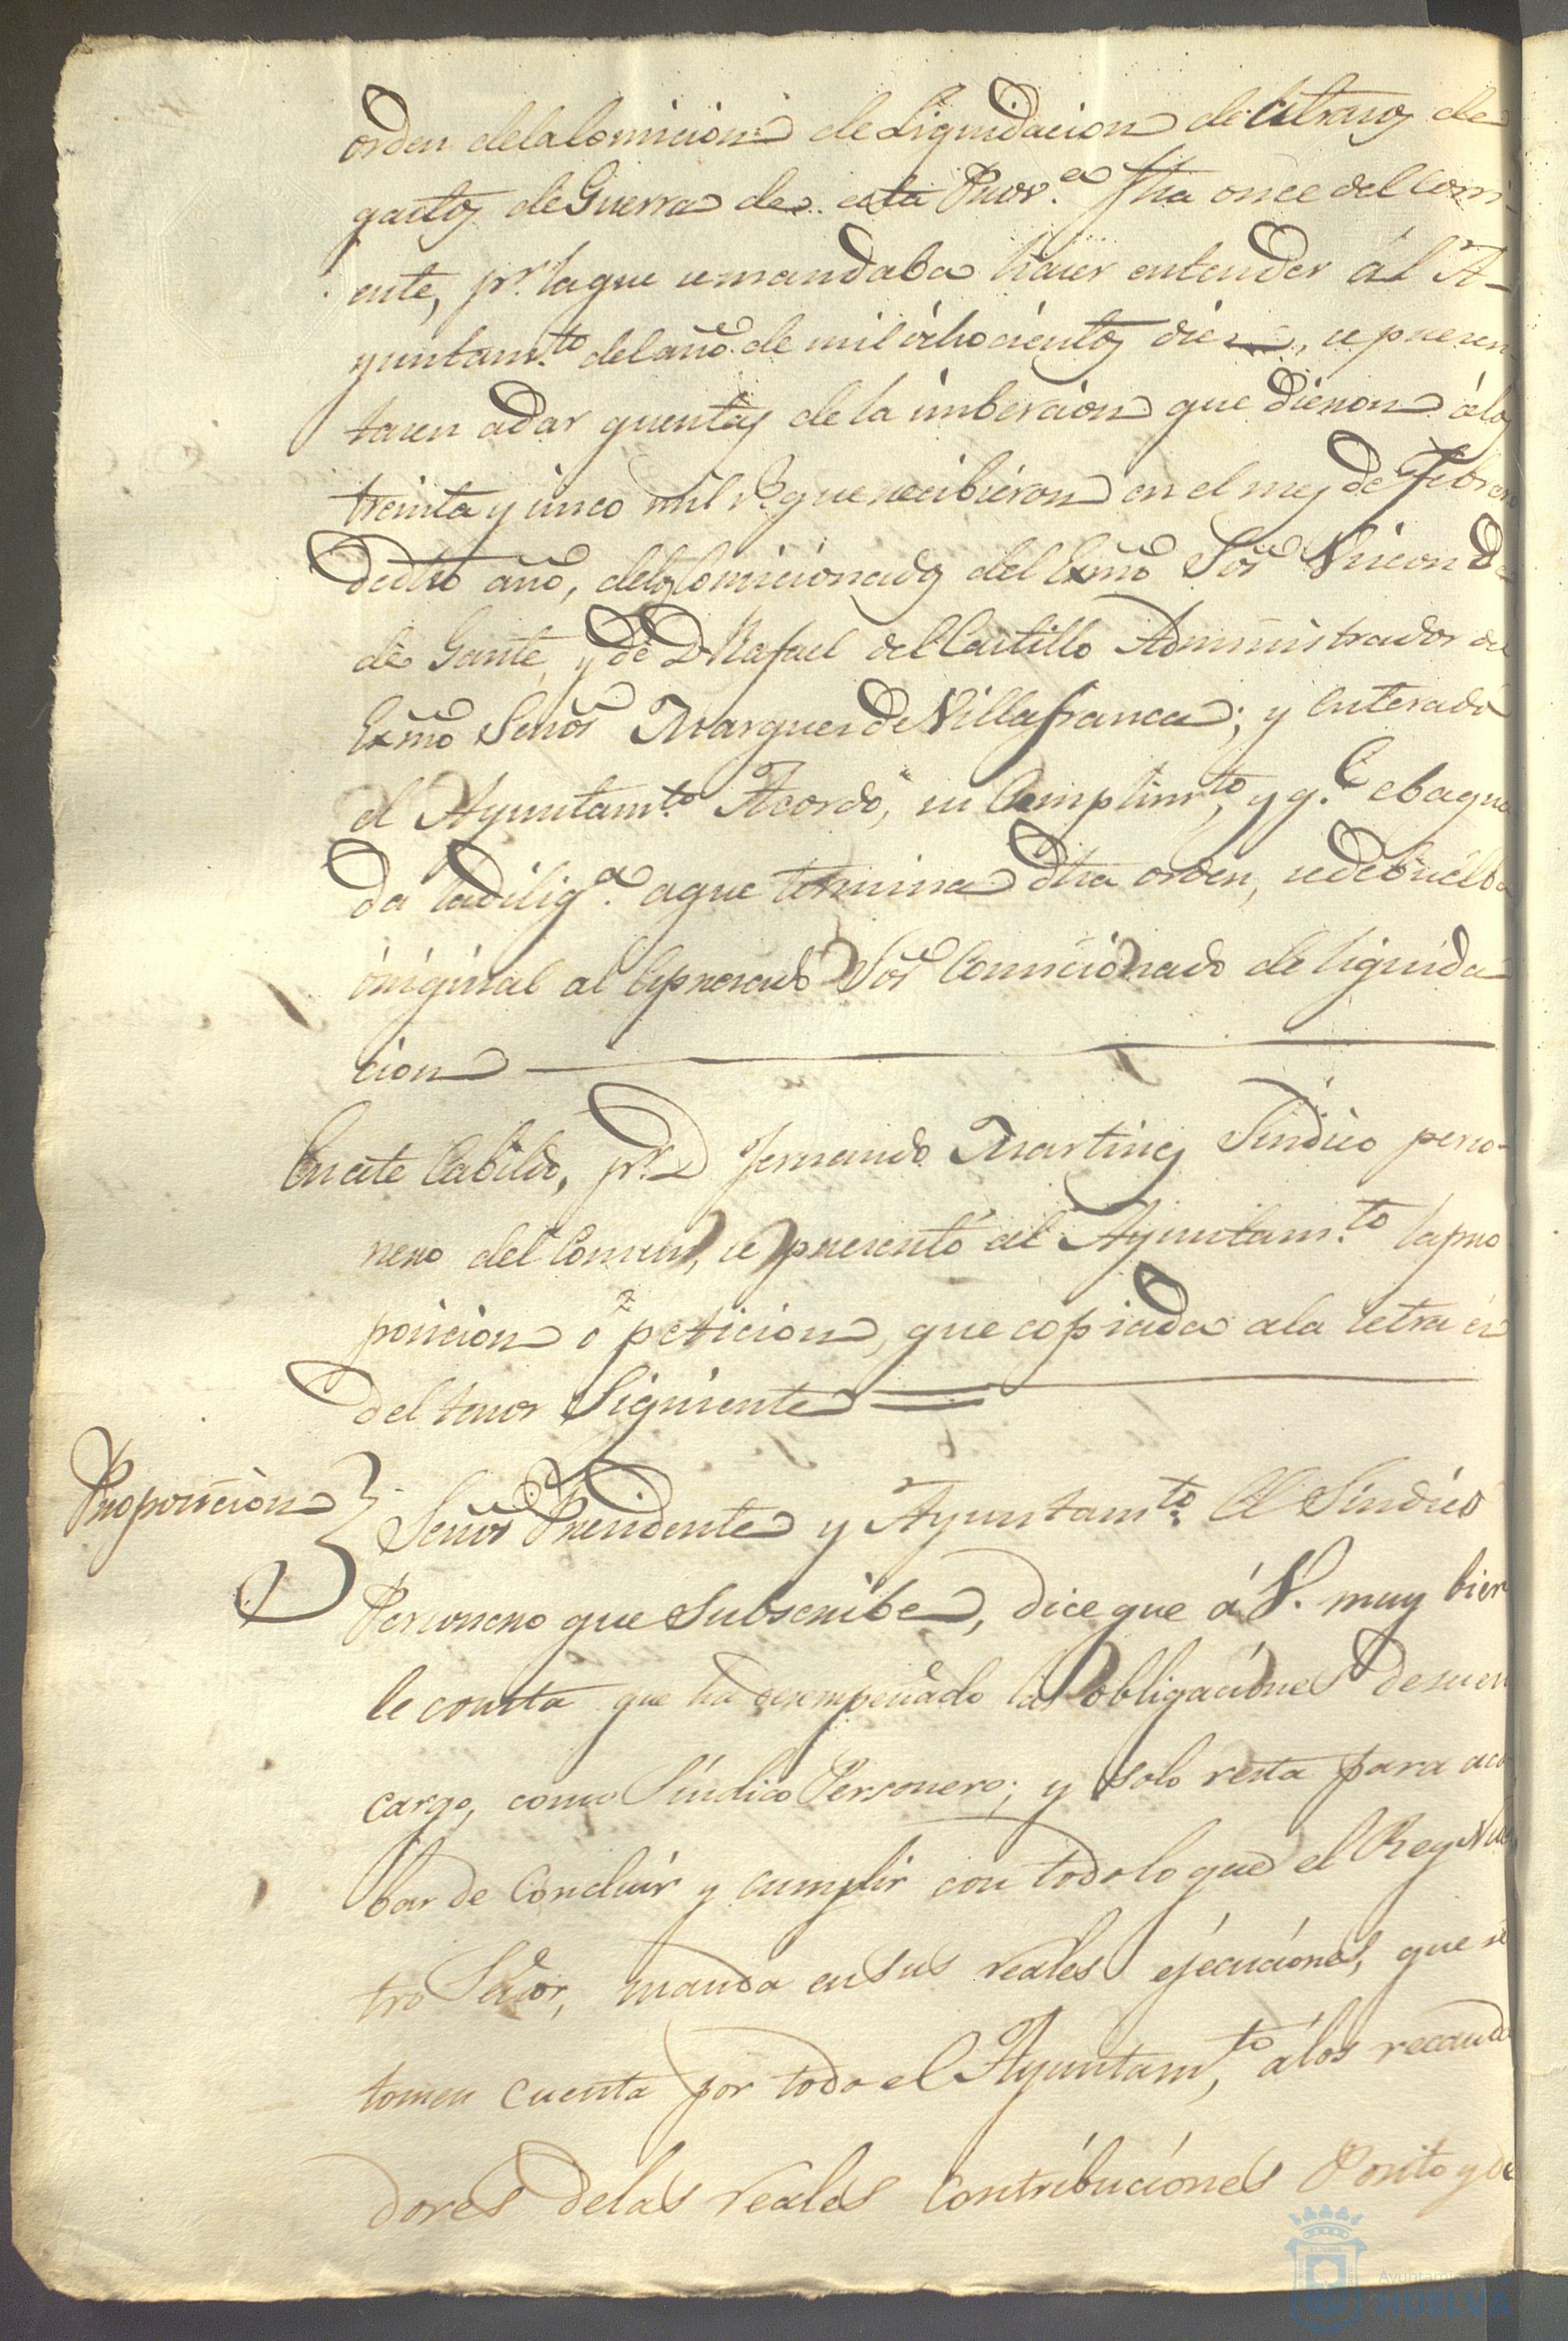 orden dela Comicion de Liquidacion de Atrasos de
gastos de Guerra de esta Prov.ª fha once del corri-
ente, pr. la que se mandaba hacer entender ál A-
yuntam.to del año de mil ochocientos diez, se presen-
tasen adar quentas de la imbercion que dieron álos
treinta y cinco mil rs. que recibieron en el mes de Febrero
de dho año, delos Comicionados del Exmo Sor Viconde
de Gante, y de Dn Rafael del Castillo Administrador del
Exmo Señor Marques de Villafranca; y enterado
el Ayuntam.to Acordó, su Cumplim.to, y q.e ebaqua
da la dilig.ª aque termina dha orden, se debuelba
original al Expresado Sor Comicionado de liquida
cion
En este Cabildo, pr. Dn Fernando Martinez Sindico perso-
nero del Comun, se presentó al Ayuntam.to la pro
posicion ó peticion, que copiada ala letra es
del tenor Siguiente
Proposicion
Señor Presidente y Ayuntam.to El Sindico
Personero que Subscribe, dice que á V. muy bien
le consta que ha desempeñado las obligaciónes de su en
cargo, como Síndico Personero; y solo resta para aca
bar de Concluir y cumplir con todo lo que el Rey Nues
tro Señor, manda en sus reales ejecuciónes, que se
tomen cuenta por todo el Ayuntam.to, álos recauda
dores delas reales Contribuciónes Posito y de
Ayuntamiento
HUELVA